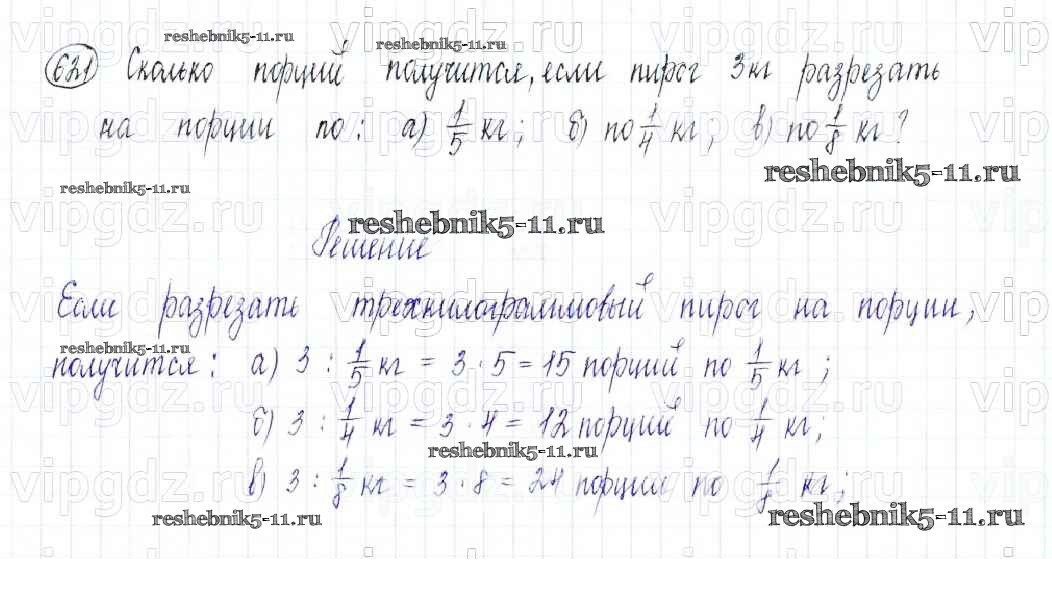 reshebnik5-11.ru
reshebnik5-11.ru
621 Сколько порций получится, если пирог 3 кг разрезать
на порции по: а) 1/5 кг; б) по 1/4 кг; в) по 1/8 кг?
reshebnik5-11.ru
reshebnik5-11.ru
reshebnik5-11.ru
Решение
Если разрезать трехкилограммовый пирог на порции,
reshebnik5-11.ru
получится: а) 3 : 1/5 кг = 3 · 5 = 15 порций по 1/5 кг;
б) 3 : 1/4 кг = 3 · 4 = 12 порций по 1/4 кг;
reshebnik5-11.ru
в) 3 : 1/8 кг = 3 · 8 = 24 порции по 1/8 кг;
reshebnik5-11.ru
reshebnik5-11.ru
vipgdz.ru